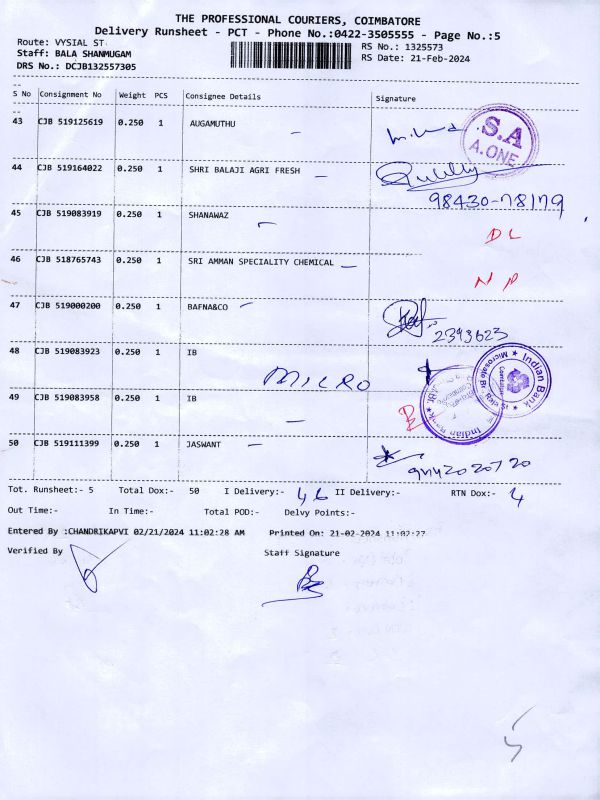 THE PROFESSIONAL COURIERS, COIMBATORE
Delivery Runsheet - PCT - Phone No.:0422-3505555 - Page No.:5
Route: VYSIAL ST
RS No.: 1325573
Staff: BALA SHANMUGAM
RS Date: 21-Feb-2024
DRS No.: DCJB132557305
S No Consignment No Weight PCS Consignee Details Signature
43 CJB 519125619 0.250 1 AUGAMUTHU
S.A
A.ONE
44 CJB 519164022 0.250 1 SHRI BALAJI AGRI FRESH
98430-78179
45 CJB 519083919 0.250 1 SHANAWAZ
DL
46 CJB 518765743 0.250 1 SRI AMMAN SPECIALITY CHEMICAL
NP
47 CJB 519000200 0.250 1 BAFNA&CO
2393623
48 CJB 519083923 0.250 1 IB
MICRO
Indian Bank
49 CJB 519083958 0.250 1 IB
Indian Bank
50 CJB 519111399 0.250 1 JASWANT
Tot. Runsheet:- 5 Total Dox:- 50 I Delivery:- 46 II Delivery:- RTN Dox:- 4
Out Time:- In Time:- Total POD:- Delvy Points:-
Entered By :CHANDRIKAPVI 02/21/2024 11:02:28 AM Printed On: 21-02-2024 11:02:27
Verified By Staff Signature